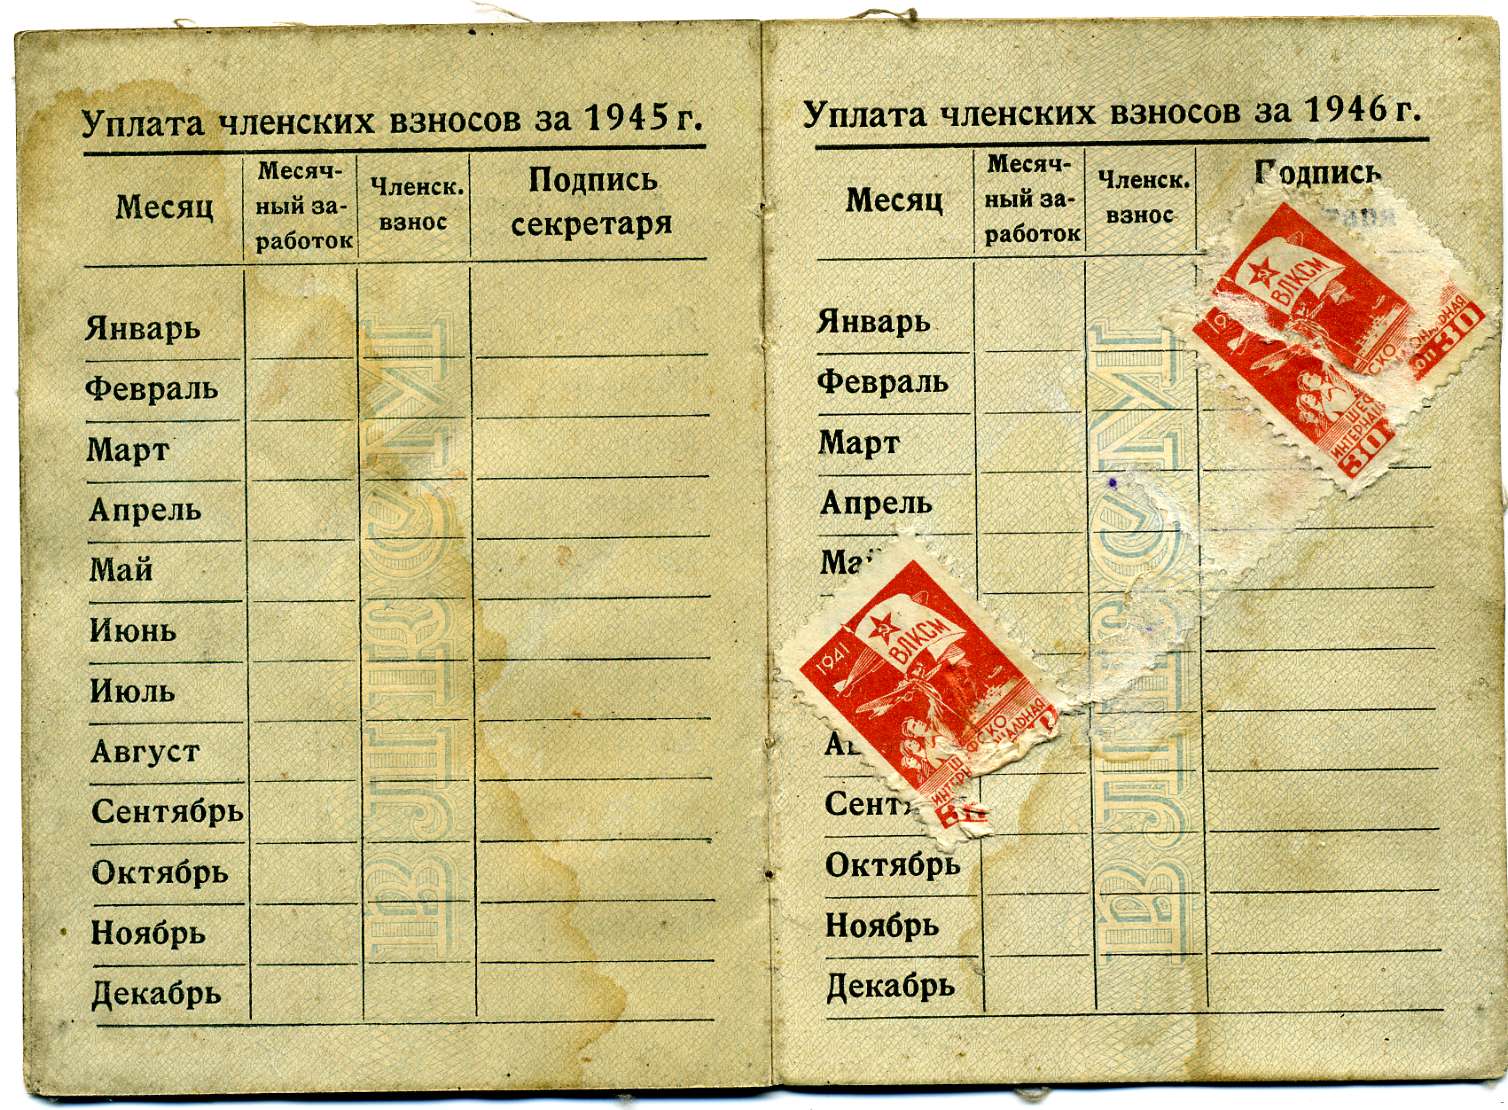 Уплата членских взносов за 1945 г.
Месяц
Месяч-
ный за-
работок
Членск.
взнос
Подпись
секретаря
Январь
Февраль
Март
Апрель
Май
Июнь
Июль
Август
Сентябрь
Октябрь
Ноябрь
Декабрь
ВЛКСМ
Уплата членских взносов за 1946 г.
Месяц
Месяч-
ный за-
работок
Членск.
взнос
Подпись
Январь
Февраль
Март
Апрель
Май
Сентя
Октябрь
Ноябрь
Декабрь
ВЛКСМ
ВЛКСМ
30
ШЕФ
ИНТЕРНАЦ
30
1941
ВЛКСМ
ФСКО